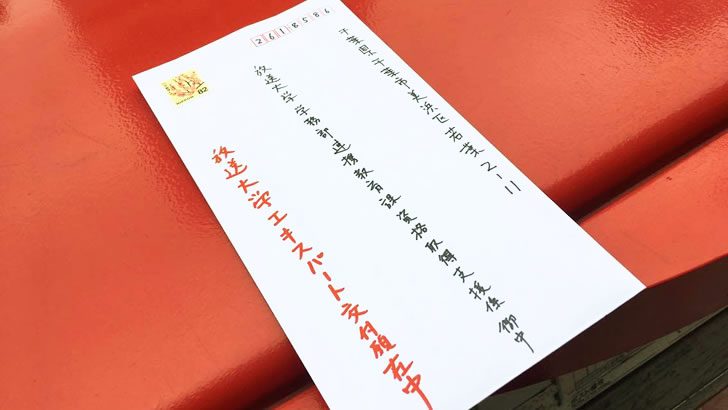 2618586
千葉県千葉市美浜区若葉2-11
放送大学学務部連携教育課資格取得支援係 御中
放送大学エキスパート交付願在中
82